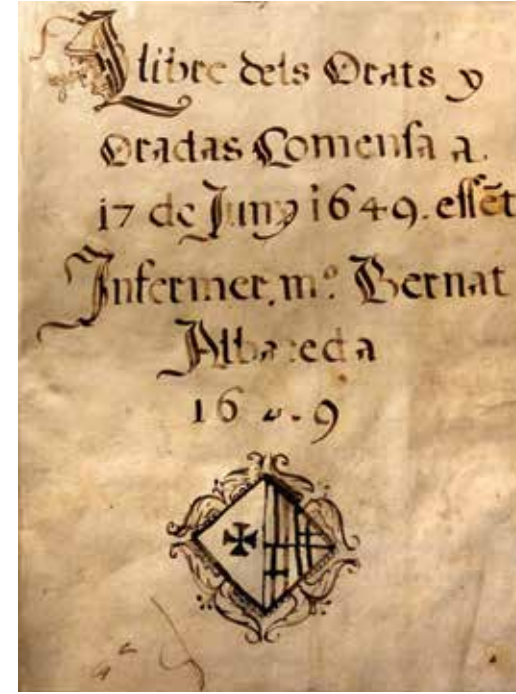 Llibre dels Orats y
Oradas Comensa a.
17 de Juny 1649. essēt
Infermer. mº. Bernat
Albareda
1649